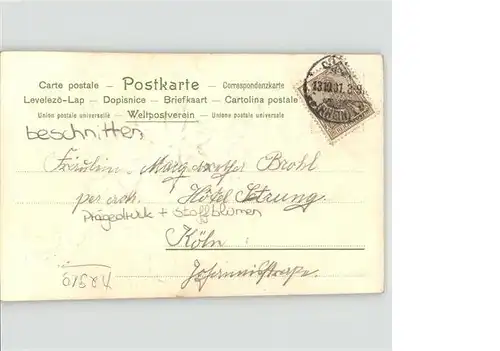 Carte postale — Postkarte — Correspondenzkarte
Levelező-Lap — Dopisnice — Briefkaart — Cartolina postale
Union postale universelle — Weltpostverein — Unione postale universale
13.10.01
beschnitten
Fräulein Brohl
Hôtel
Prägedruck + Stoffblumen
Köln
Johannisstrasse.